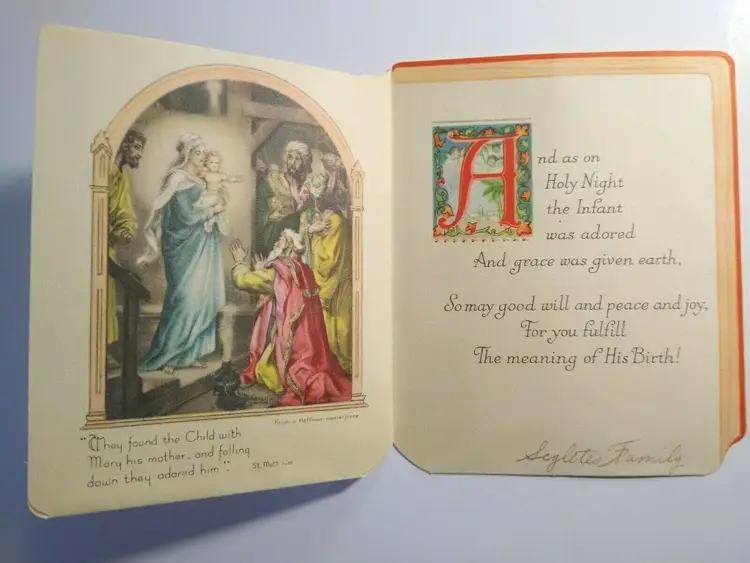 From a Hoffman masterpiece
"They found the Child with
Mary his mother, and falling
down they adored him".
St. Matt
And as on
Holy Night
the Infant
was adored
And grace was given earth,
So may good will and peace and joy,
For you fulfill
The meaning of His Birth!
Segletes Family